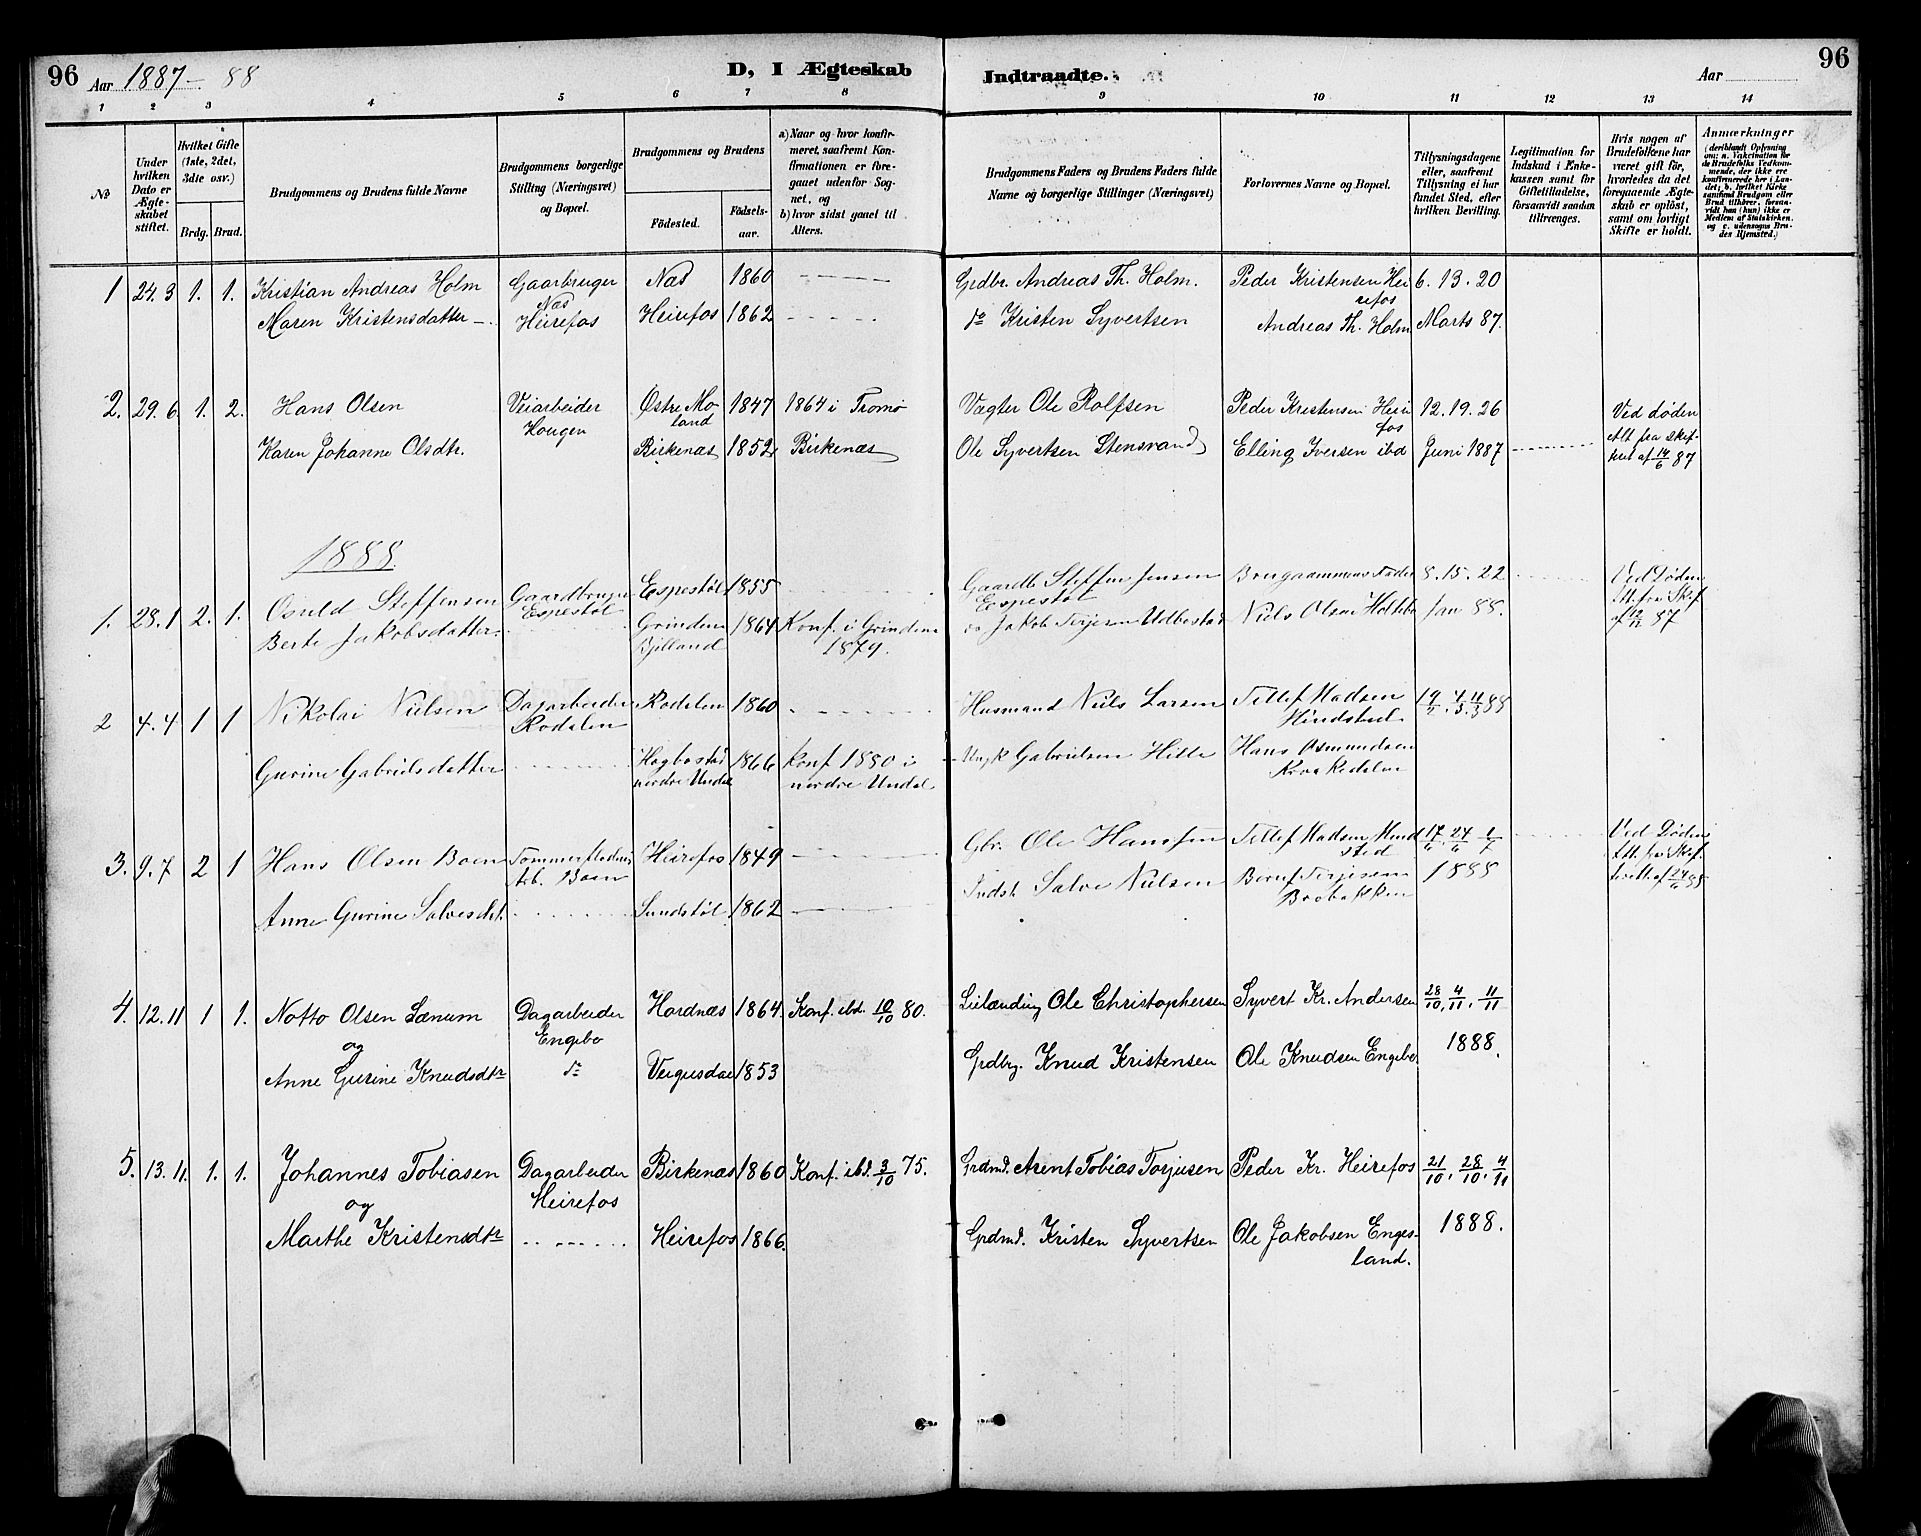 96 Aar 1887-88 D, I Ægteskab Indtraadte. Aar 96
1 2 3 4 5 6 7 8 9 10 11 12 13 14
No
Under hvilken Dato er Ægteskabet stiftet.
Hvilket Gifte (1ste, 2det, 3die osv.)
Brdg. Brud.
Brudgommens og Brudens fulde Navne
Brudgommens borgerlige Stilling (Næringsvei) og Bopæl.
Brudgommens og Brudens
Födested.
Födsels-aar.
a) Naar og hvor konfirmeret, saafremt Konfirmationen er foregaaet udenfor Sognet, og
b) hvor sidst gaaet til Alters.
Brudgommens Faders og Brudens Faders fulde Navne og borgerlige Stillinger (Næringsvei)
Forlovernes Navne og Bopæl.
Tillysningsdagene eller, saafremt Tillysning ei har fundet Sted, efter hvilken Bevilling.
Legitimation for Indskud i Enkekassen samt for Giftetilladelse, forsaavidt saadan tiltrænges.
Hvis nogen af Brudefolkene har været gift för, hvorledes da det foregaaende Ægteskab er oplöst, samt om lovligt Skifte er holdt.
Anmærkninger (deriblandt Oplysning om: a. Vakcination for de Brudefolks Vedkommende, der ikke ere konfirmerede her i Landet; b. hvilket Kirkesamfund Brudgom eller Brud tilhörer, forsaavidt han (hun) ikke er Medlem af Statskirken, og c. udensogns Brudes Hjemsted.)
1 24.3 1. 1. Kristian Andreas Holm Gaarbruger Næs 1860 Grdbr. Andreas Th. Holm. Peder Kristensen Hei 6. 13. 20
Næs refos
Maren Kristensdatter Heirefos Heirefos 1862 do Kristen Syvertsen Andreas Th. Holm Marts 87.
2. 29.6 1. 2. Hans Olsen Veiarbeider Østre Mo 1847 1864 i Tromø Vægter Ole Rolfsen Peder Kristensen Heire 12. 19. 26 Ved døden
Hougen land fos Att fra skif
Karen Johanne Olsdtr. Birkenæs 1852 Birkenæs Ole Syvertsen Stensvand Elling Iversen ibd Juni 1887 af 14/6 87
1888.
1. 28.1 2. 1. Osuld Steffensen Gaardbruger Espestøl 1855 Steffen Jensen Fader 8. 15. 22 Ved Døden
Espestøl Espestøl Att. fra Skif
Berte Jakobsdatter Grindem 1864 Konf. i Grindem Jakob Terjesen Niels Olsen Jan 88. 87
Bjelland 1879.
2 4.4 1 1 Nikolai Nielsen Dagarbeider Rodalen 1860 Husmand Niels Larsen Tellef Madsen 88
Rodalen
Gurine Gabrielsdatter Hægbostad 1866 Konf 1880 i Gabrielsen Hille Hans Osmundsen
nordre Undal nordre Undal
3. 9.7 2 1 Hans Olsen Boen Heirefos 1849 Gbr. Ole Hanssen Tellef Madsen 17/6 24/6 1/7 Ved Døden
Arb. Boen sted Att. fra Skif.
Anne Gurine Salvesdtr. Sundstøl 1862 Indst. Salve Nielsen Terjesen 1888
4. 12.11 1 1. Notto Olsen Lænum Dagarbeider Hordnæs 1864 Konf. ibd. 10/10 80. Leilænding Ole Christophersen Syvert Kr. Andersen 28/10, 4/11, 11/11
og Engebo
Anne Gurine Knudsdtr do 1853 Grdbrg. Knud Kristensen Ole Knudsen Engebo 1888.
5. 13.11. 1. 1. Johannes Tobiasen Dagarbeider Birkenæs 1860 Konf. ibd. 3/10 75. Grdmd. Arent Tobias Torjusen Peder Kr. Heirefos 21/10, 28/10, 4/11
og Heirefos
Marthe Kristensdtr Heirefos 1866. Grdmd. Kristen Syvertsen Ole Jakobsen Enges- 1888.
land.